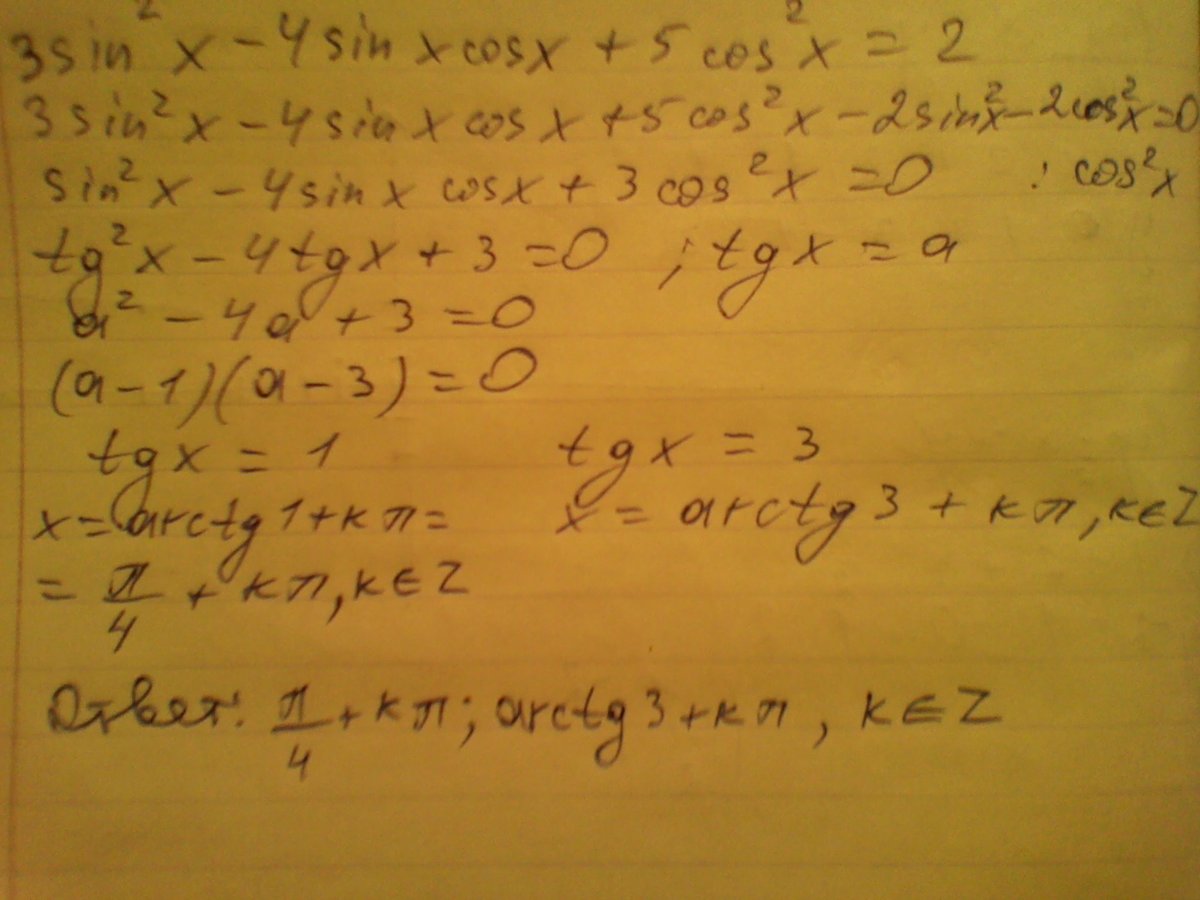 3sin²x − 4sin x cosx + 5 cos²x = 2
3sin²x − 4sin x cos x + 5cos²x − 2sin²x − 2cos²x = 0
sin²x − 4sin x cosx + 3cos²x = 0 : cos²x
tg²x − 4tgx + 3 = 0 ; tgx = a
a² − 4a + 3 = 0
(a − 1)(a − 3) = 0
tgx = 1 tgx = 3
x = arctg1 + кπ = x = arctg3 + кπ, к∈Z
= π/4 + кπ, к∈Z
Ответ: π/4 + кπ; arctg3 + кπ, к∈Z